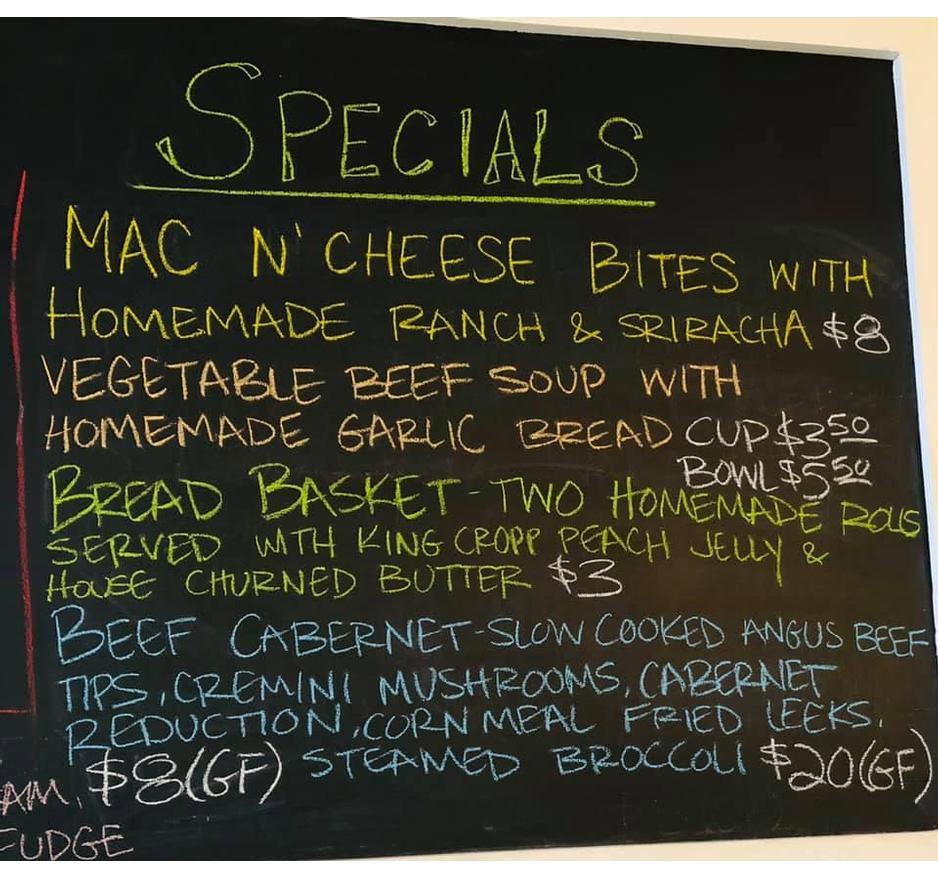 SPECIALS
MAC N' CHEESE BITES WITH
HOMEMADE RANCH & SRIRACHA $8
VEGETABLE BEEF SOUP WITH
HOMEMADE GARLIC BREAD CUP $3.50
BOWL $5.50
BREAD BASKET - TWO HOMEMADE ROLLS
SERVED WITH KING CROPP PEACH JELLY &
HOUSE CHURNED BUTTER $3
BEEF CABERNET - SLOW COOKED ANGUS BEEF
TIPS, CREMINI MUSHROOMS, CABERNET
REDUCTION, CORN MEAL FRIED LEEKS,
STEAMED BROCCOLI $20 (GF)
AM, $8 (GF)
FUDGE